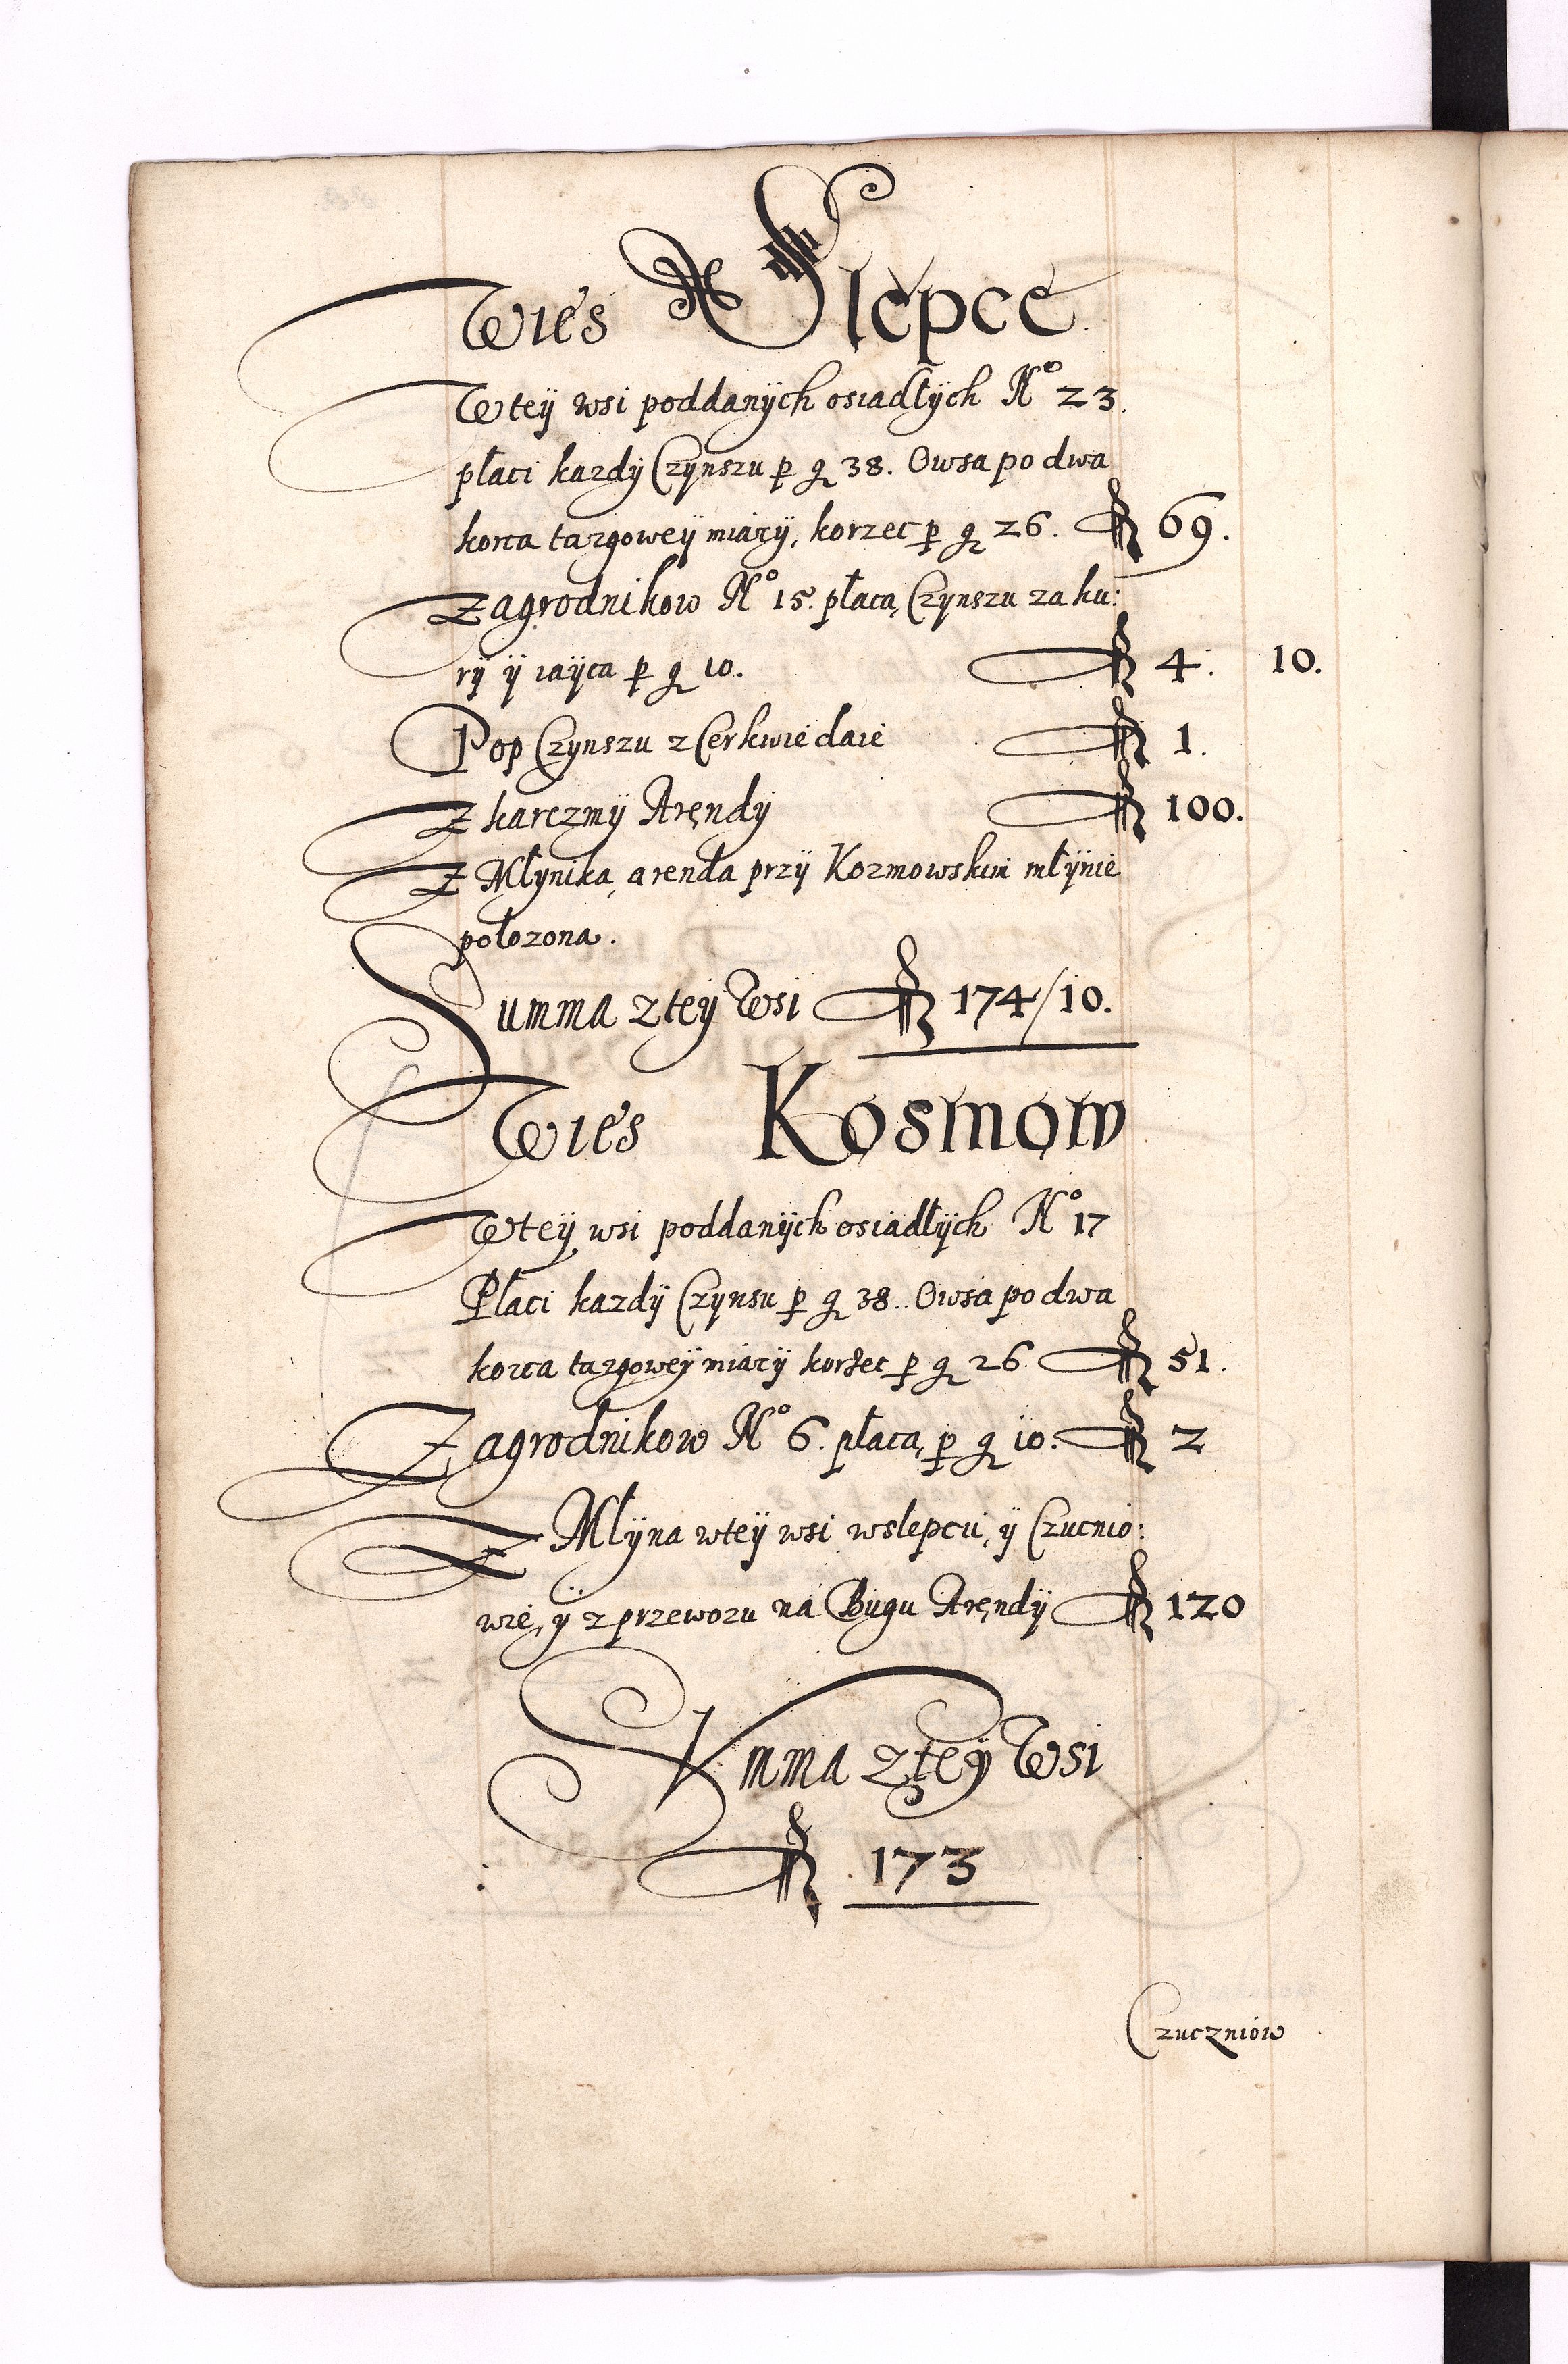 Wieś Slepce
Wteÿ wsi poddanÿch osiadłÿch N° 23.
płaci kazdÿ Czÿnszu p g 38. Owsa po dwa
korca targoweÿ miarÿ, korzec p g 26. fl 69.
Zagrodnikow N° 15. płacą Czÿnszu za ku:
rÿ ÿ iaÿca p g 10. fl 4. 10.
Pop Czÿnszu z Cerkwie daie fl 1.
Z karczmÿ Arendÿ fl 100.
Z Młÿnika, arenda przÿ Kozmowskim młÿnie
połozona.
Summa z teÿ Wsi fl 174/10.
Wieś Kosmow
Wteÿ wsi poddanÿch osiadłÿch N° 17
Płaci kazdÿ Czÿnsu p g 38. Owsa po dwa
korca targoweÿ miarÿ korzec p g 26. fl 51.
Zagrodnikow N° 6. płacą p g 10. fl 2
Z Młÿna wteÿ wsi wslepcu, ÿ Czucnio:
wie, ÿ z przewozu na Bugu Arendÿ fl 120
SVmma z teÿ Wsi
fl 173
Czuczniow